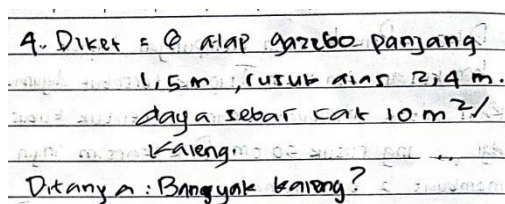 4. Diket : @ atap gazebo panjang
1,5 m, rusuk alas 2,4 m.
daya sebar cat 10 m²/
kaleng.
Ditanya : Banyak kaleng?